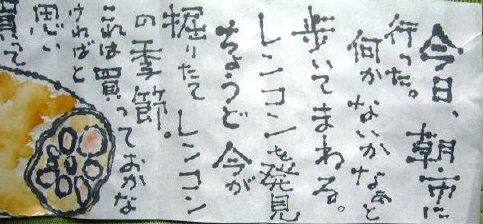 今日、朝市に
行った。
何かないかなぁと
歩いてまわる。
レンコンを発見
ちょうど今が
掘りたてレンコン
の季節。
これは買っておかな
ければと
思い
買って